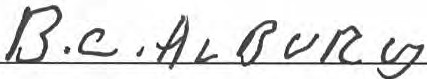 B.C. ALBURY